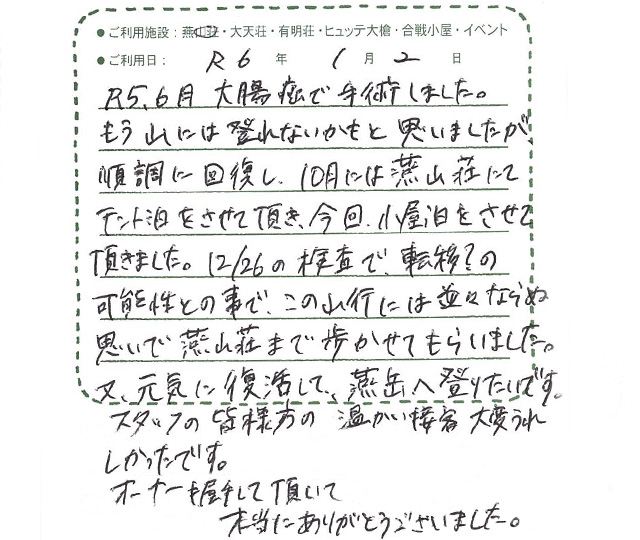 ●ご利用施設：燕山荘・大天荘・有明荘・ヒュッテ大槍・合戦小屋・イベント
●ご利用日： R6 年 1 月 2 日
R5、6月 大腸癌で手術しました。
もう山には登れないかもと思いましたが、
順調に回復し、10月には燕山荘にて
テント泊をさせて頂き、今回、小屋泊をさせて
頂きました。12/26の検査で、転移?の
可能性との事で、この山行には並々ならぬ
思いで燕山荘まで歩かせてもらいました。
又、元気に復活して、燕岳へ登りたいです。
スタッフの皆様方の温かい接客大変うれ
しかったです。
オーナーも握手して頂いて
本当にありがとうございました。